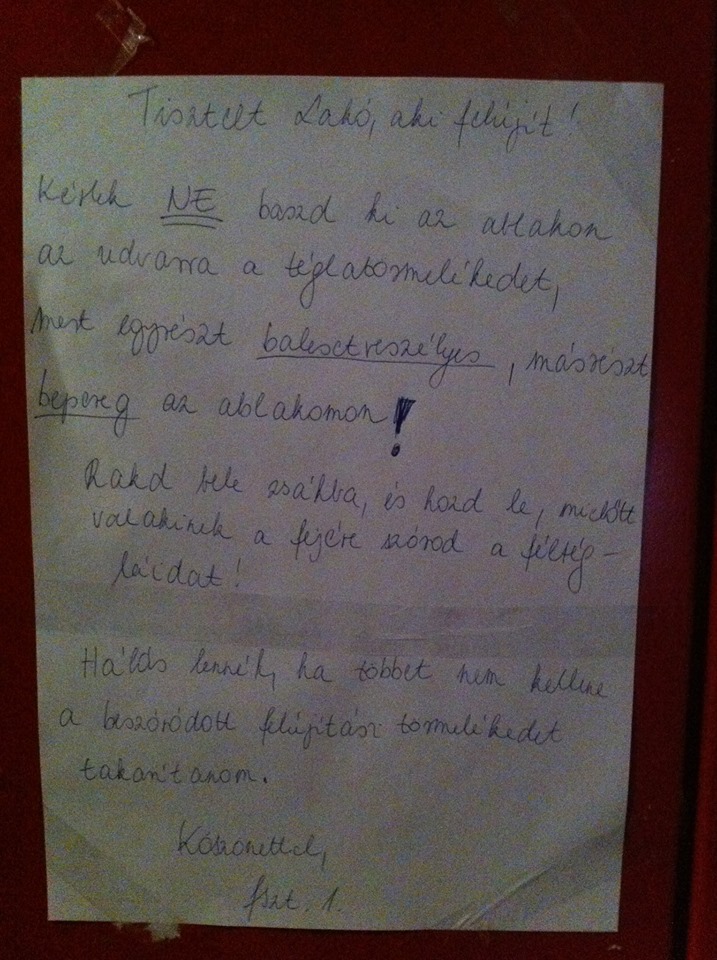 Tisztelt Lakó, aki felújít!
Kérlek NE baszd ki az ablakon
az udvarra a téglatörmelékedet,
mert egyrészt balesetveszélyes, másrészt
bepereg az ablakomon!
Rakd bele zsákba, és hozd le, mielőtt
valakinek a fejére szórod a féltég-
láidat!
Hálás lennék, ha többet nem kellene
a beszóródott felújítási törmelékedet
takarítanom.
Köszönettel,
fszt. 1.